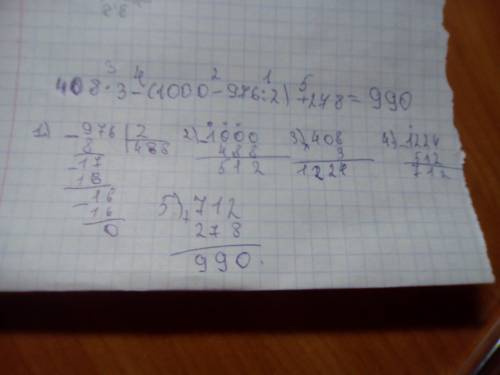 3 4 2 1 5
408·3-(1000-976:2)+278=990
1) -976 | 2 2) -1000 3) ×408 4) -1224
8 488 488 3 512
-17 512 1224 712
16
-16 5) +712
16 278
0 990.